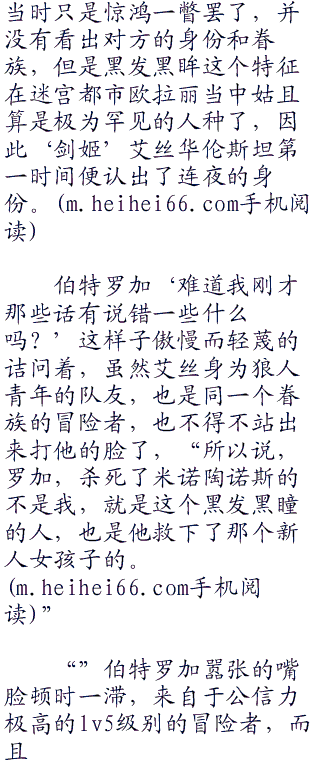 当时只是惊鸿一瞥罢了，并
没有看出对方的身份和眷
族，但是黑发黑眸这个特征
在迷宫都市欧拉丽当中姑且
算是极为罕见的人种了，因
此‘剑姬’艾丝华伦斯坦第
一时间便认出了连夜的身
份。(m.heihei66.com手机阅
读)
伯特罗加‘难道我刚才
那些话有说错一些什么
吗？’这样子傲慢而轻蔑的
诘问着，虽然艾丝身为狼人
青年的队友，也是同一个眷
族的冒险者，也不得不站出
来打他的脸了，“所以说，
罗加，杀死了米诺陶诺斯的
不是我，就是这个黑发黑瞳
的人，也是他救下了那个新
人女孩子的。
(m.heihei66.com手机阅
读)”
“”伯特罗加嚣张的嘴
脸顿时一滞，来自于公信力
极高的lv5级别的冒险者，而
且